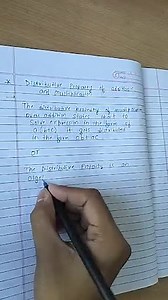 * Distributive Property of Addition
and Multiplication
The distributive Property of multiplication
over addition states that to
solve expression in the form
a(b+c) it gets distributed
in the form ab+ac
or
The Distributive Property is an
alge